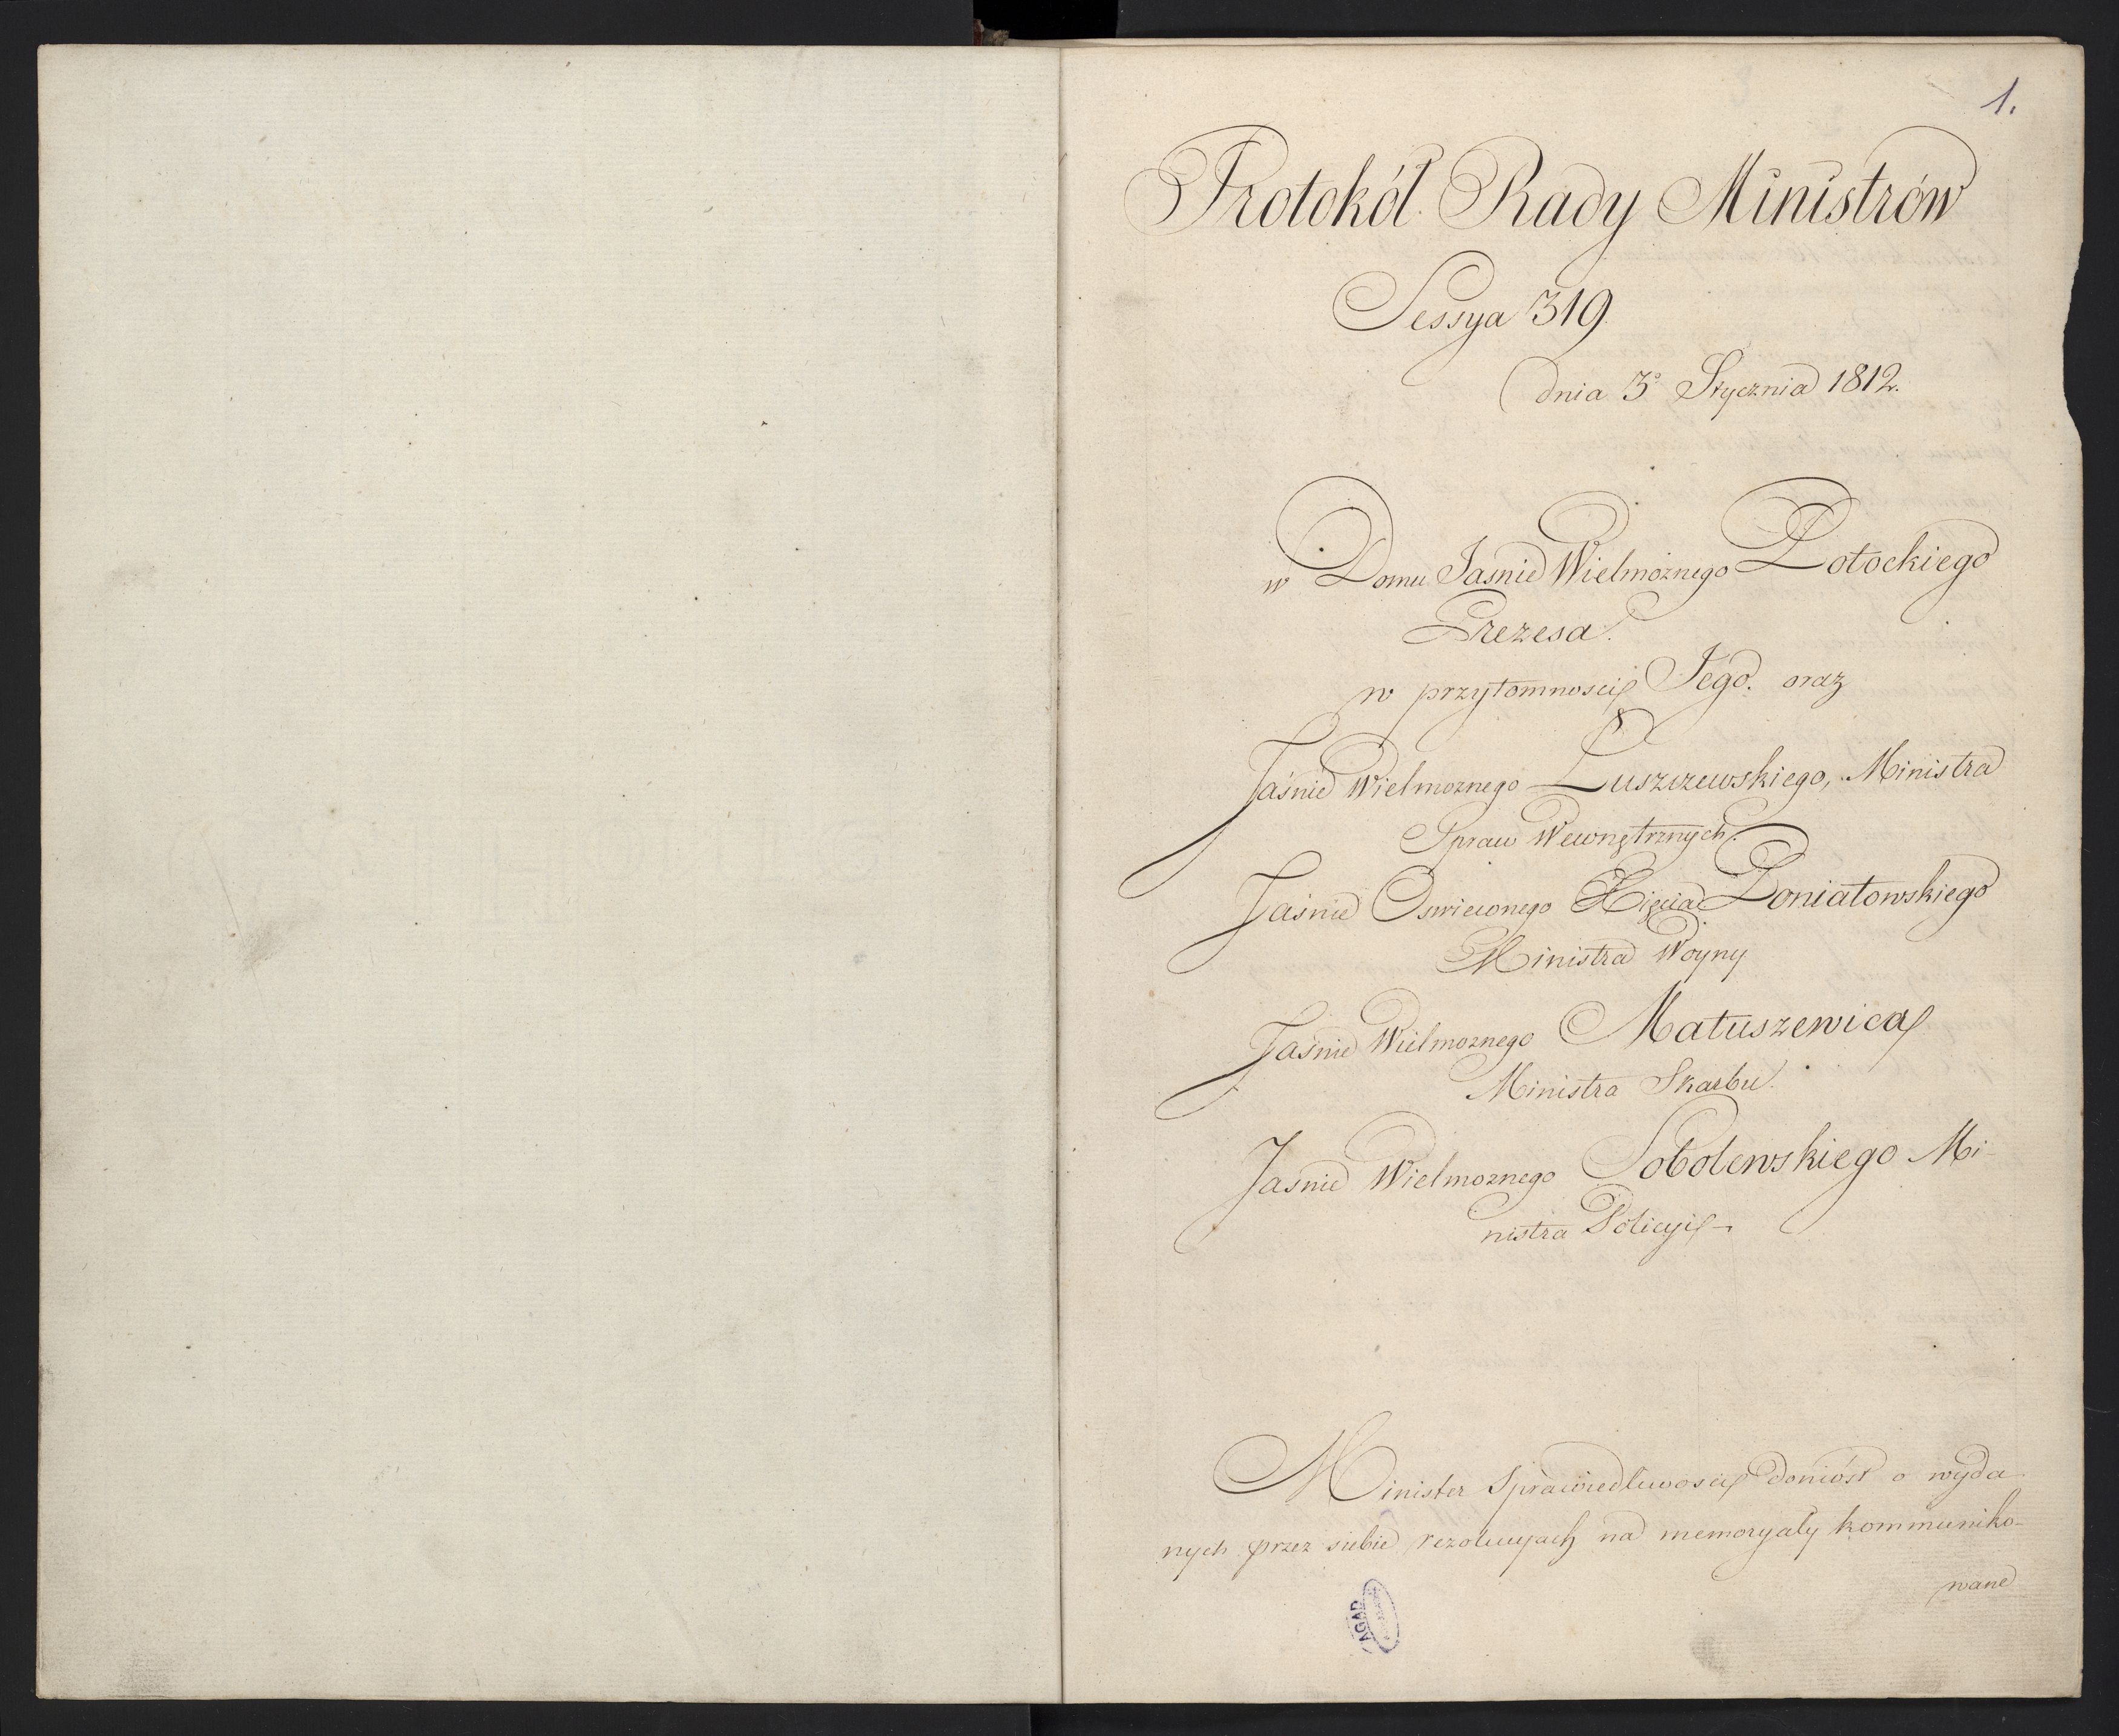 1.
Protokół Rady Ministrów
Sessya 319
dnia 3º Stycznia 1812.
w Domu Jasnie Wielmożnego Potockiego
Prezesa.
w przytomności Jego. oraz
Jaśnie Wielmoznego Łuszczewskiego, Ministra
Spraw Wewnętrznych.
Jaśnie Oswieconego Xięcia Poniatowskiego
Ministra Woyny
Jaśnie Wielmoznego Matuszewica
Ministra Skarbu.
Jaśnie Wielmoznego Sobolewskiego Mi-
nistra Policyi
Minister Sprawiedliwosci doniósł o wyda-
nych przez siebie rezolucyach na memoryały kommuniko-
wane
AGAD